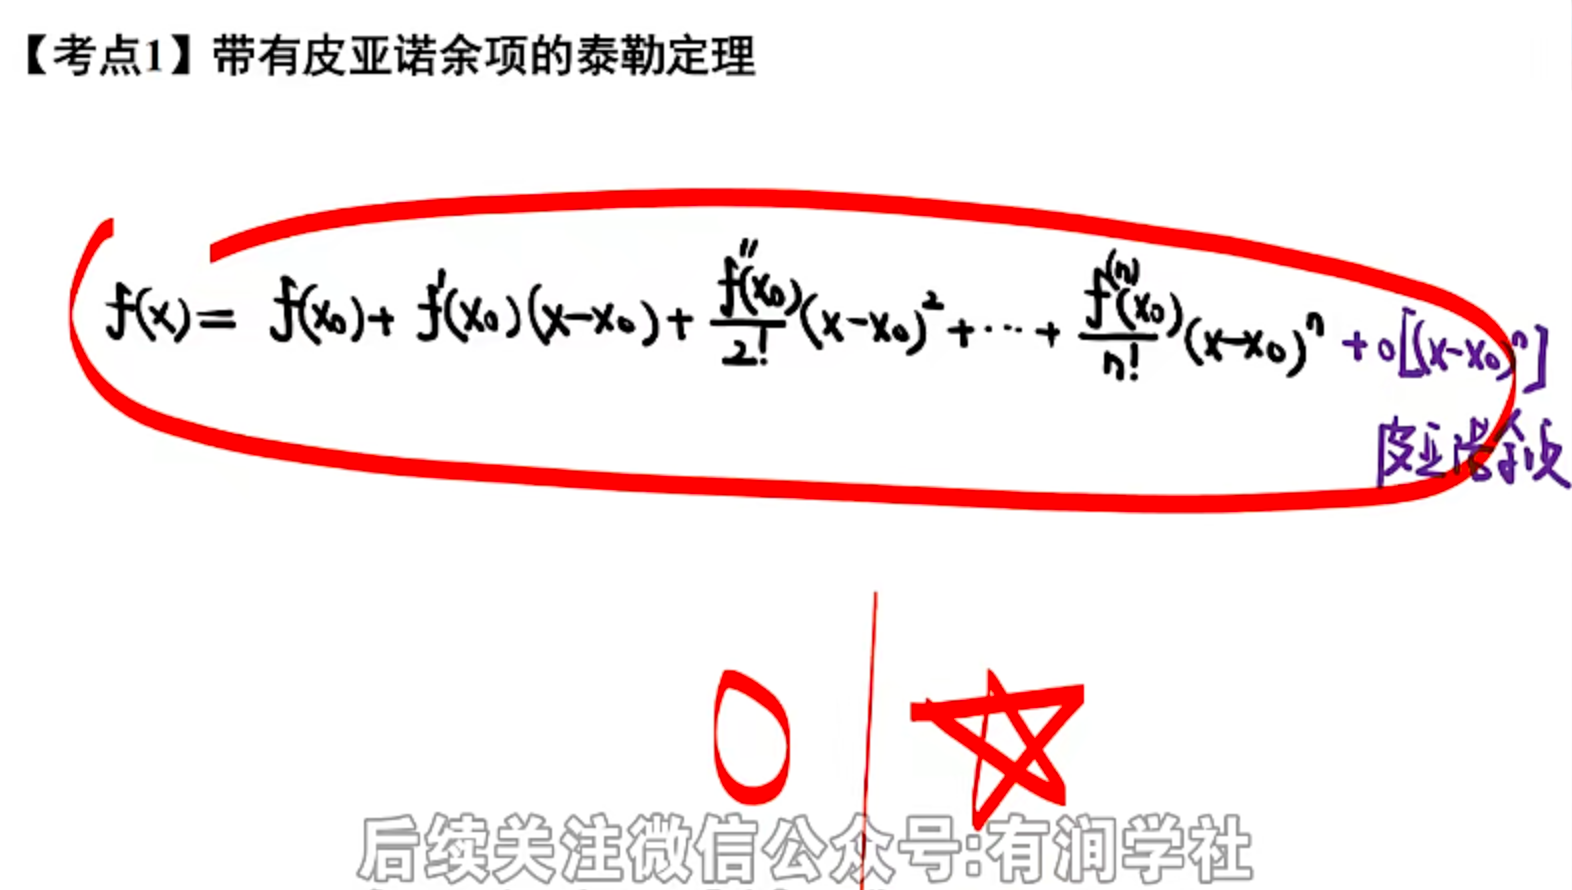 【考点1】带有皮亚诺余项的泰勒定理
f(x) = f(x₀) + f'(x₀)(x-x₀) + f''(x₀)/2! (x-x₀)² + ··· + f⁽ⁿ⁾(x₀)/n! (x-x₀)ⁿ + o[(x-x₀)ⁿ]
皮亚诺余项
0
后续关注微信公众号:有润学社